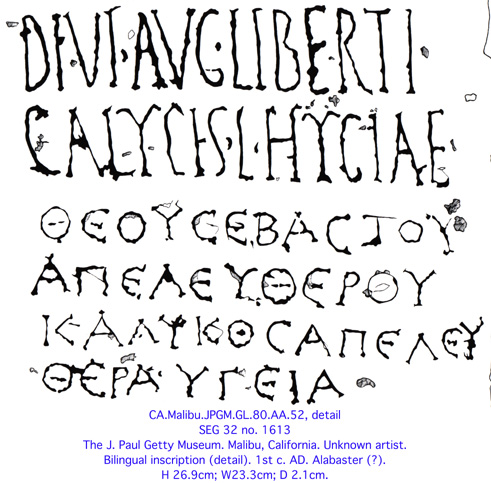 DIVI·AVG·LIBERTI
CALYCIS·L·HYGIAE
ΘΕΟΥϹΕΒΑϹΤΟΥ
ΑΠΕΛΕΥΘΕΡΟΥ
ΚΑΛΥΚΟϹΑΠΕΛΕΥ
ΘΕΡΑ·ΥΓΕΙΑ
CA.Malibu.JPGM.GL.80.AA.52, detail
SEG 32 no. 1613
The J. Paul Getty Museum. Malibu, California. Unknown artist.
Bilingual inscription (detail). 1st c. AD. Alabaster (?).
H 26.9cm; W23.3cm; D 2.1cm.